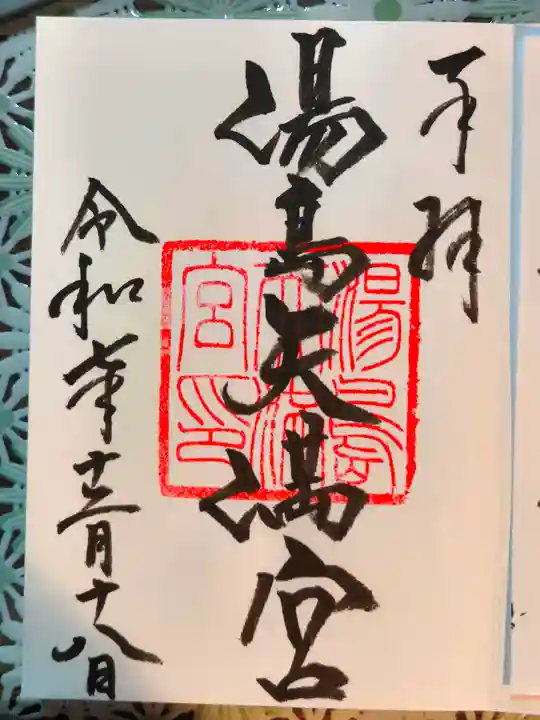 奉拝
湯島天満宮
令和七年十二月十八日
湯島
天満
宮印